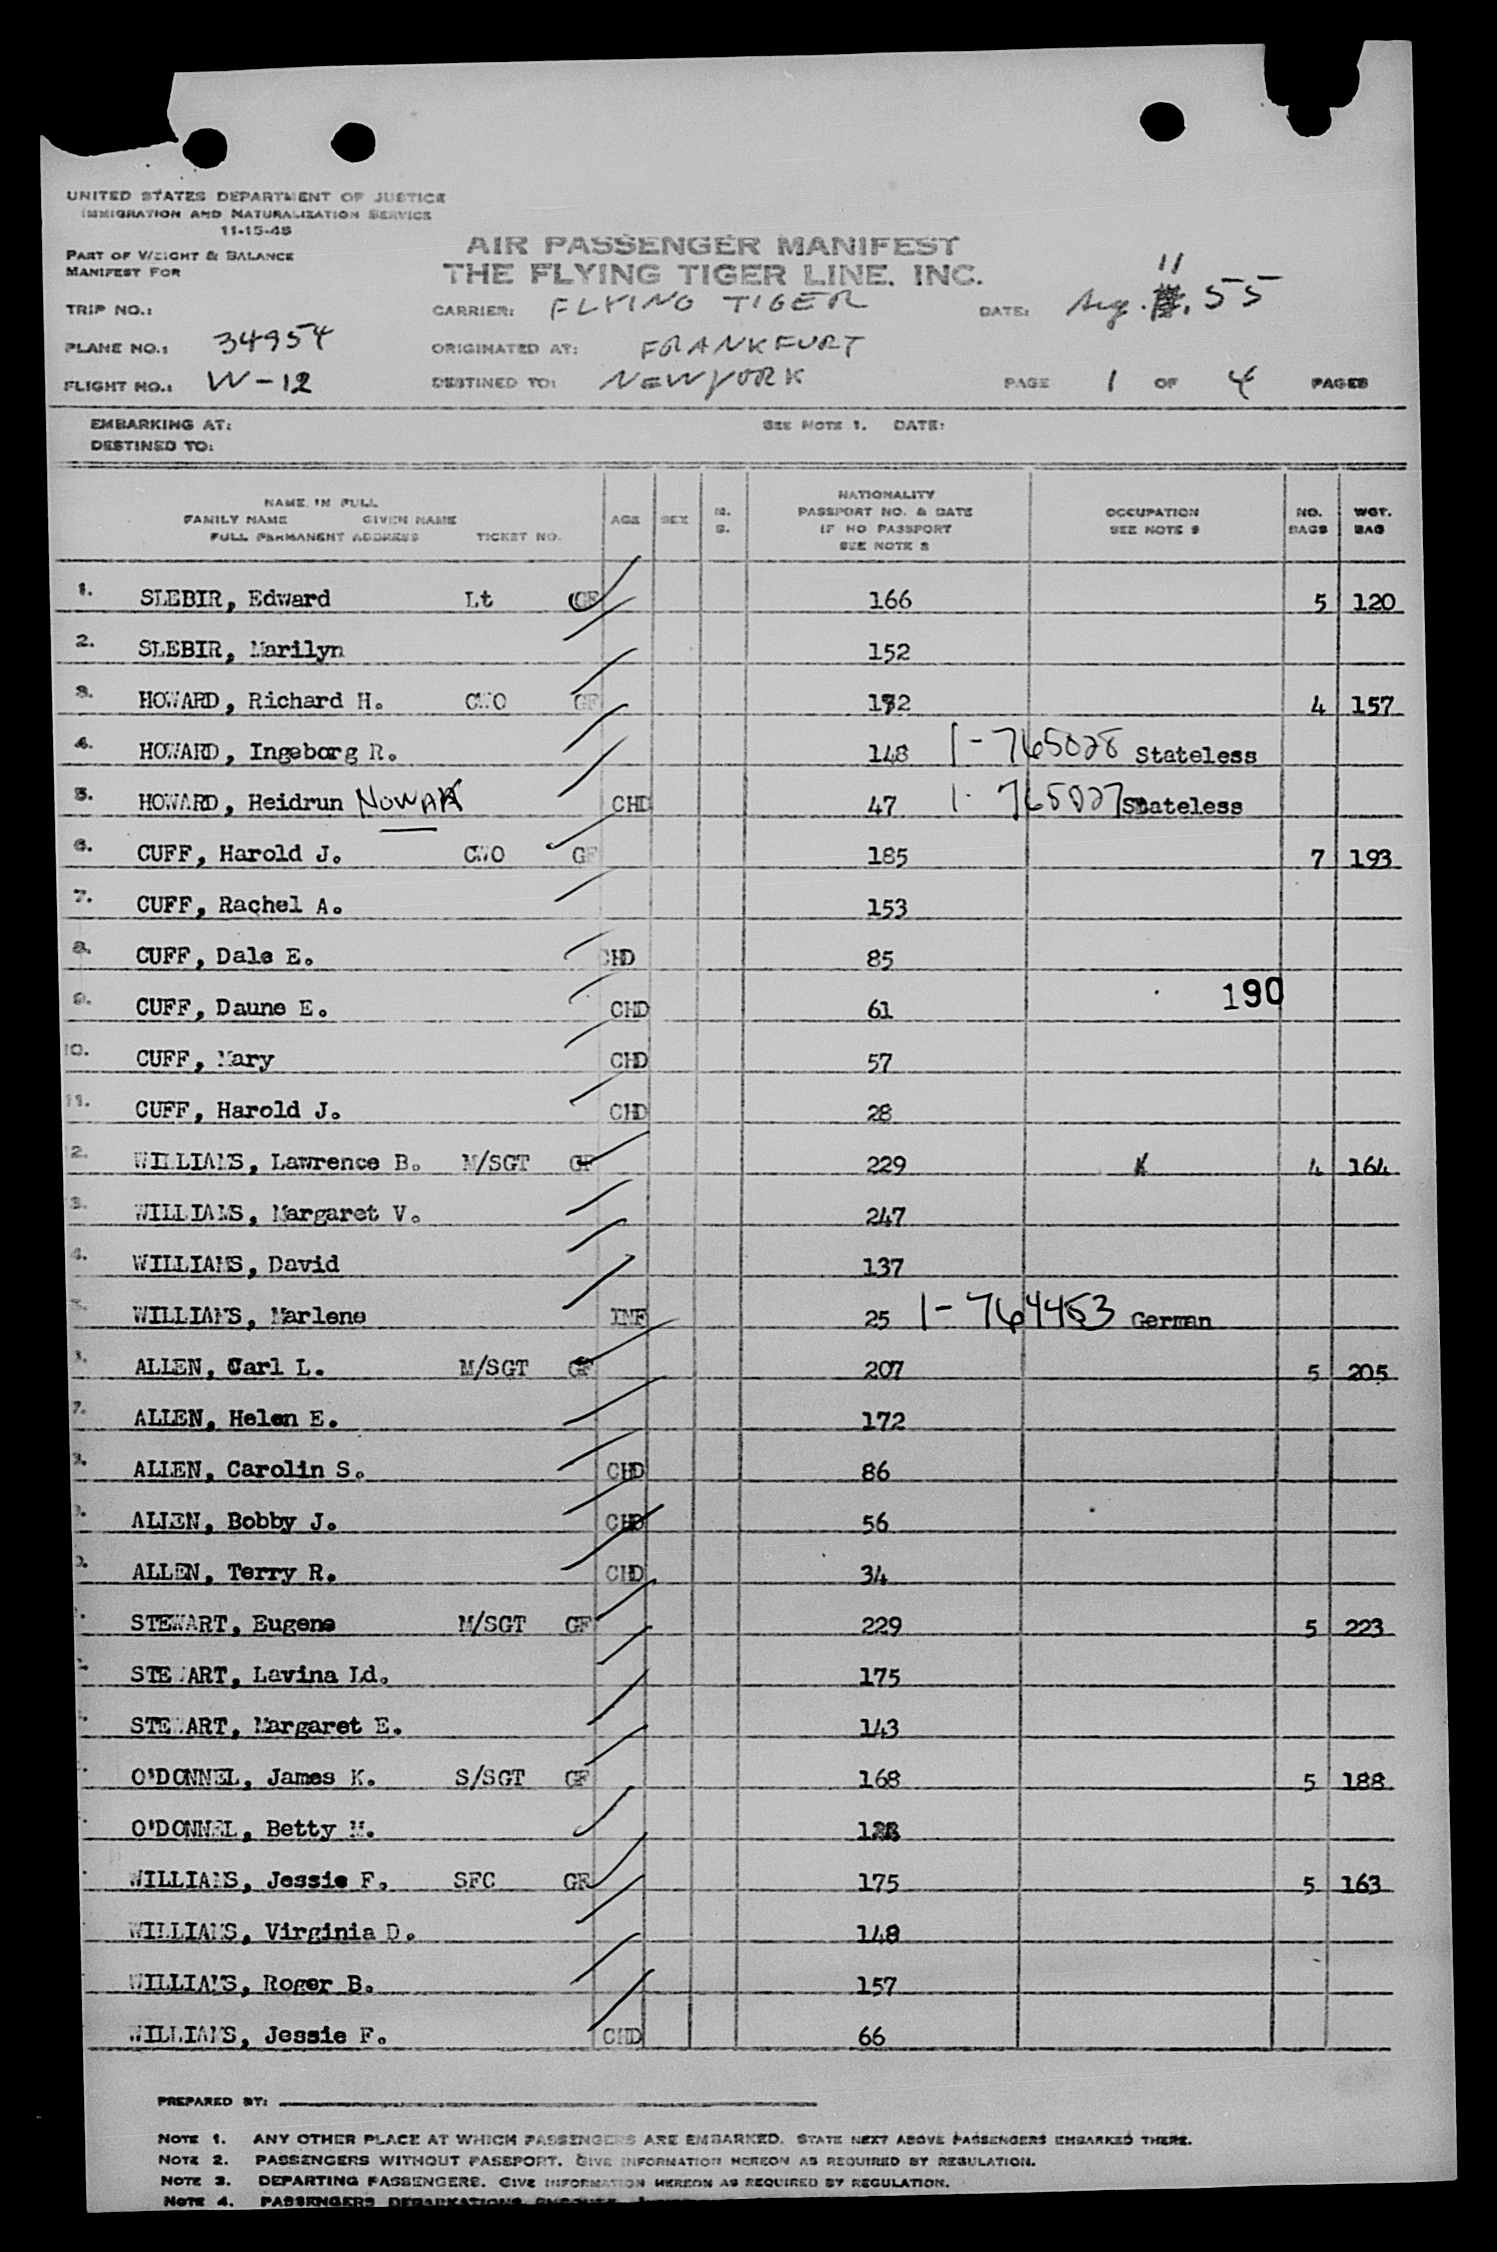 UNITED STATES DEPARTMENT OF JUSTICE
IMMIGRATION AND NATURALIZATION SERVICE
11-15-48
PART OF WEIGHT & BALANCE
MANIFEST FOR
AIR PASSENGER MANIFEST
THE FLYING TIGER LINE. INC.
TRIP NO.: CARRIER: FLYING TIGER DATE: Aug. 11. 55
PLANE NO.: 34954 ORIGINATED AT: FRANKFURT
FLIGHT NO.: W-12 DESTINED TO: NEWYORK PAGE 1 OF 4 PAGES
EMBARKING AT: SEE NOTE 1. DATE:
DESTINED TO:
NAME IN FULL
FAMILY NAME GIVEN NAME
FULL PERMANENT ADDRESS TICKET NO.
AGE SEX M. S.
NATIONALITY
PASSPORT NO. & DATE
IF NO PASSPORT
SEE NOTE 2
OCCUPATION
SEE NOTE 3
NO. BAGS
WGT. BAG
1. SLEBIR, Edward Lt GF 166 5 120
2. SLEBIR, Marilyn 152
3. HOWARD, Richard H. CWO GF 192 4 157
4. HOWARD, Ingeborg R. 148 1-765028 Stateless
5. HOWARD, Heidrun NOWAK CHD 47 1-765027 Stateless
6. CUFF, Harold J. CWO GF 185 7 193
7. CUFF, Rachel A. 153
8. CUFF, Dale E. CHD 85
9. CUFF, Daune E. CHD 61 190
10. CUFF, Mary CHD 57
11. CUFF, Harold J. CHD 28
2. WILLIAMS, Lawrence B. M/SGT GF 229 4 164
3. WILLIAMS, Margaret V. 247
4. WILLIAMS, David 137
5. WILLIAMS, Marlene INF 25 1-764453 German
ALLEN, Carl L. M/SGT GF 207 5 205
7. ALLEN, Helen E. 172
ALLEN, Carolin S. CHD 86
ALLEN, Bobby J. CHD 56
ALLEN, Terry R. CHD 34
STEWART, Eugene M/SGT GF 229 5 223
STEWART, Lavina Ld. 175
STEWART, Margaret E. 143
O'DONNEL, James K. S/SGT GF 168 5 188
O'DONNEL, Betty M.
WILLIAMS, Jessie F. SFC GF 175 5 163
WILLIAMS, Virginia D. 148
WILLIAMS, Roger B. 157
WILLIAMS, Jessie F. CHD 66
PREPARED BY:
NOTE 1. ANY OTHER PLACE AT WHICH PASSENGERS ARE EMBARKED. STATE NEXT ABOVE PASSENGERS EMBARKED THERE.
NOTE 2. PASSENGERS WITHOUT PASSPORT. GIVE INFORMATION HEREON AS REQUIRED BY REGULATION.
NOTE 3. DEPARTING PASSENGERS. GIVE INFORMATION HEREON AS REQUIRED BY REGULATION.
NOTE 4. PASSENGERS